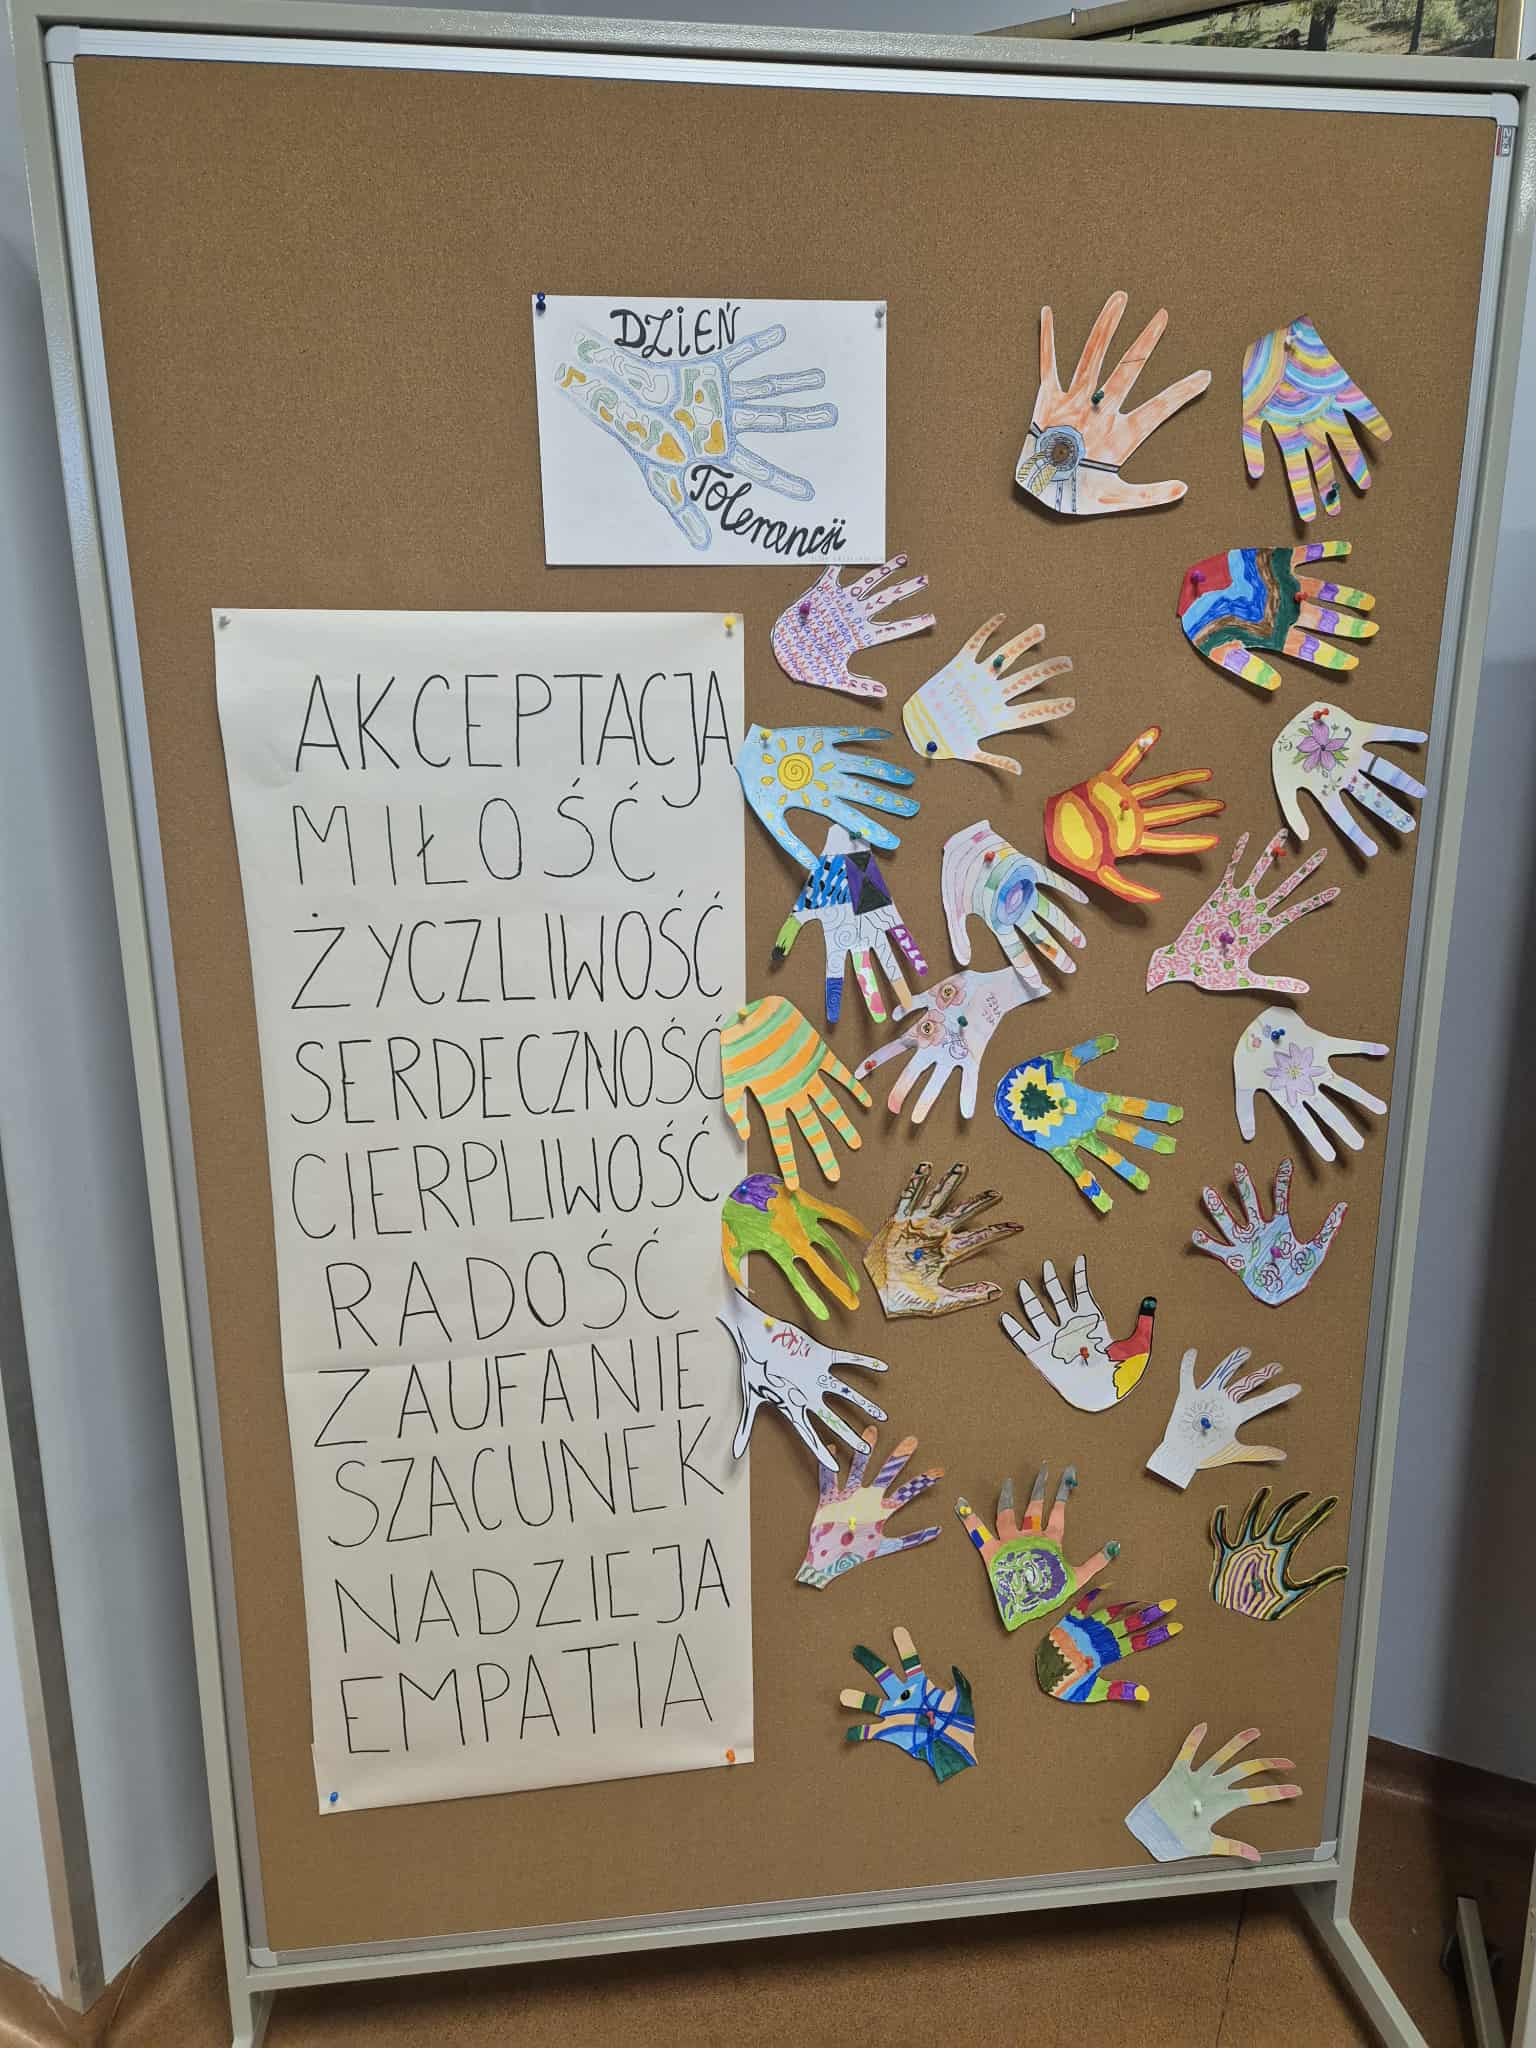 DZIEŃ
Tolerancji
AKCEPTACJA
MIŁOŚĆ
ŻYCZLIWOŚĆ
SERDECZNOŚĆ
CIERPLIWOŚĆ
RADOŚĆ
ZAUFANIE
SZACUNEK
NADZIEJA
EMPATIA
2x3